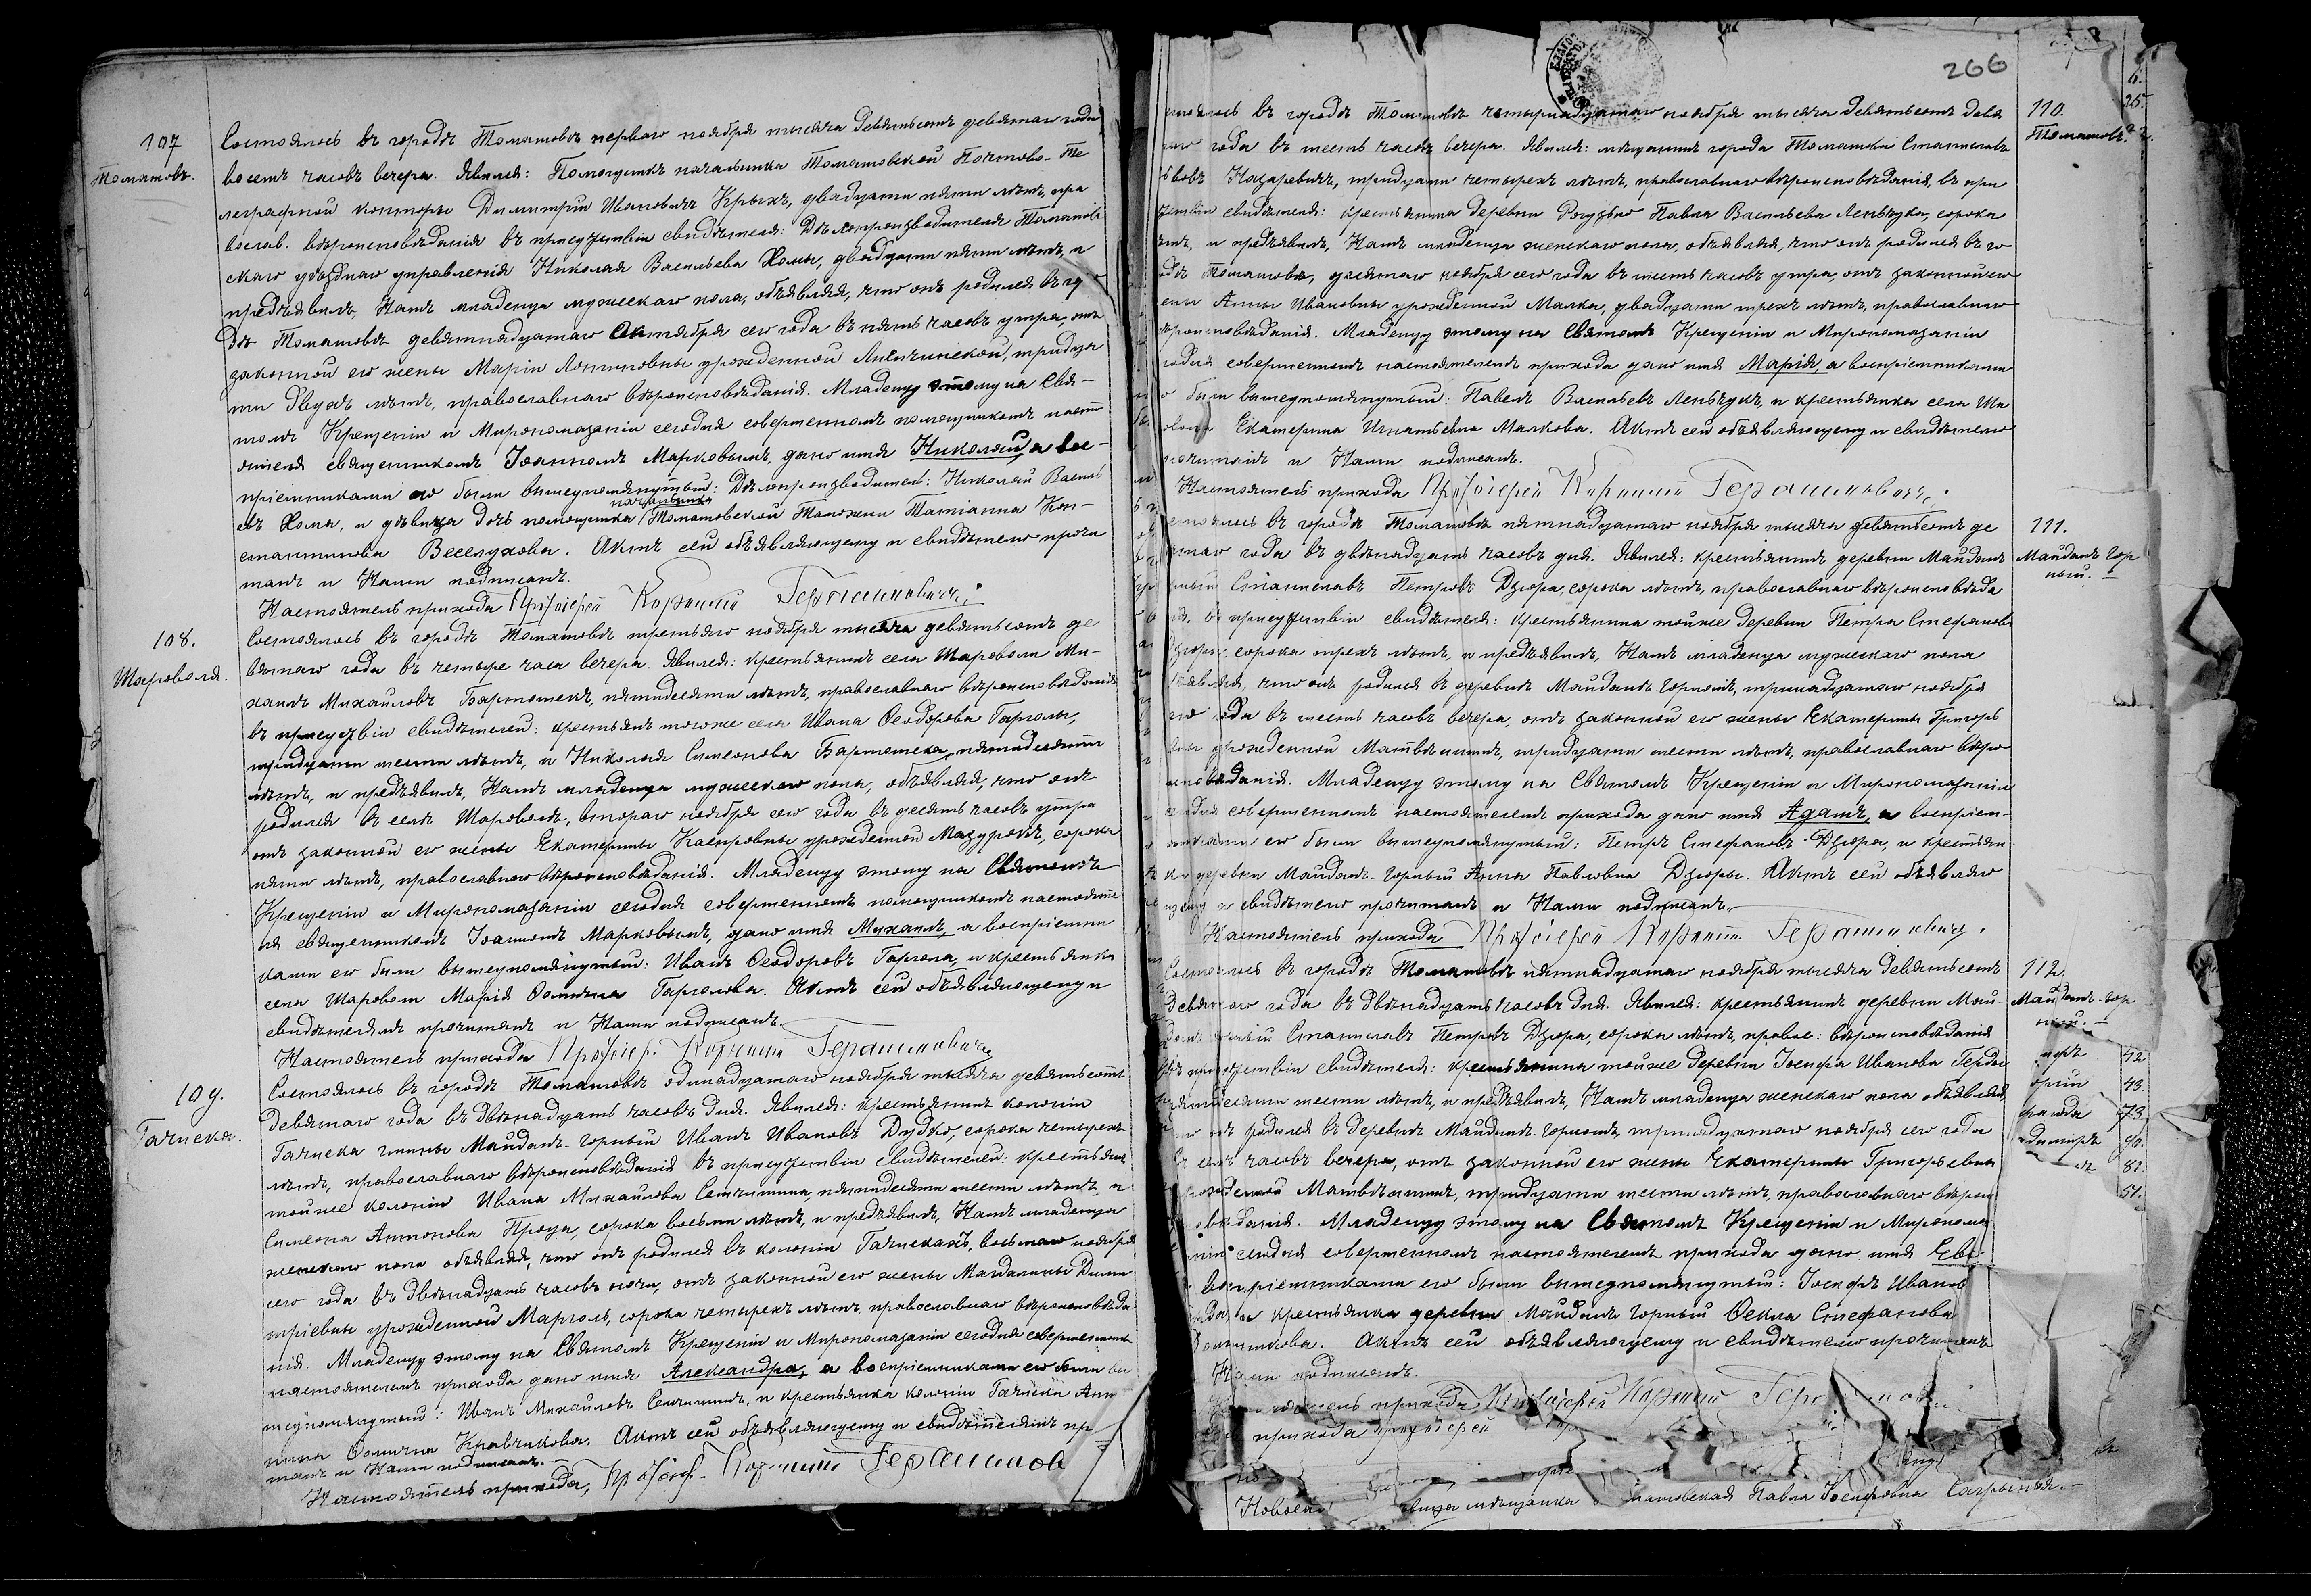 107
Томашовъ.
Состоялось въ городѣ Томашовѣ перваго ноября тысяча девятьсотъ девятаго года
восемь часовъ вечера. Явился: Помощникъ начальника Томашовской Почтово-Те
леграфной конторы Димитрій Ивановичъ Крыхъ, двадцати пяти лѣтъ, пра
вослав. вѣроисповѣданія въ присутствіи свидѣтеля: Дѣлопроизводителя Томашов
скаго уѣзднаго управленія Николая Васильева Хомы, двадцати пяти лѣтъ, и
предъявилъ, Намъ младенца мужескаго пола, объявляя, что онъ родился въ го
дѣ Томашовѣ девятнадцатаго Октября сего года въ пять часовъ утра, отъ
законной его жены Маріи Логиновны урожденной тридца
ти двухъ лѣтъ, православнаго вѣроисповѣданія. Младенцу этому на Свя-
томъ Крещеніи и Миропомазаніи сегодня совершенномъ помощникомъ насто
ятеля священникомъ Іоанномъ Марковымъ, дано имя Николай, а вос-
пріемниками его были вышеупомянутый: Дѣлопроизводитель: Николай Василь
евъ Хома, и дѣвица дочь помощника начальника Томашовской Таможни Татіанна Кон-
стантинова Веселухова. Актъ сей объявляющему и свидѣтелю прочи
танъ и Нами подписанъ.
Настоятель прихода Протоіерей Корнилій Герашиновичъ
108.
Шароволя.
Состоялось въ городѣ Томашовѣ третьяго ноября тысяча девятьсотъ де
вятаго года въ четыре часа вечера. Явился: крестьянинъ села Шароволи Ми-
хаилъ Михайловъ Бартошекъ, пятидесяти лѣтъ, православнаго вѣроисповѣданія
въ присутствіи свидѣтелей: крестьянъ того же села Ивана Ѳеодорова Гарголы,
тридцати шести лѣтъ, и Николая Симеонова Бартошека, пятидесяти
лѣтъ, и предъявилъ, Намъ младенца мужескаго пола, объявляя, что онъ
родился въ селѣ Шароволѣ, второго ноября сего года въ десять часовъ утра
отъ законной его жены Екатерины Касировны урожденной Мазурокъ, сорока
пяти лѣтъ, православнаго вѣроисповѣданія. Младенцу этому на Святомъ
Крещеніи и Миропомазаніи сегодня совершенномъ помощникомъ настояте
ля священникомъ Іоанномъ Марковымъ, дано имя Михаилъ, а воспріемни
ками его были вышеупомянутый: Иванъ Ѳеодоровъ Гаргола, и крестьянка
села Шароволи Марія Ѳомична Гарголова. Актъ сей объявляющему и
свидѣтелямъ прочитанъ и Нами подписанъ.
Настоятель прихода Протоіер. Корнилій Герашиновичъ
109.
Гачиска.
Состоялось въ городѣ Томашовѣ одинадцатаго ноября тысяча девятьсотъ
девятаго года въ двѣнадцать часовъ дня. Явился: крестьянинъ колоніи
Гачиска гмины Майданъ-горный Иванъ Ивановъ Дудко, сорока четырехъ
лѣтъ, православнаго вѣроисповѣданія въ присутствіи свидѣтелей: крестьянъ
той же колоніи Ивана Михайлова Сенчишина, пятидесяти шести лѣтъ, и
Симеона Антонова Проца, сорока восьми лѣтъ, и предъявилъ, Намъ младенца
женскаго пола объявляя, что онъ родился въ колоніи Гачискахъ, восьмаго ноября
сего года въ двѣнадцать часовъ ночи, отъ законной его жены Магдалины Дими
тріевны урожденной Марголь, сорока четырехъ лѣтъ, православнаго вѣроисповѣда
нія. Младенцу этому на Святомъ Крещеніи и Миропомазаніи сегодня совершенномъ
настоятелемъ прихода дано имя Александра, а воспріемниками его были вы
шеупомянутый: Иванъ Михайловъ Сенчишинъ, и крестьянка колоніи Гачиски Ан
Ѳомична Кравчикова. Актъ сей объявляющему и свидѣтелямъ про
танъ и Нами подписанъ.
Настоятель прихода, Протоіер. Корнилій Герашинов
266
110.
Томашовъ.
25.
стоялось въ городѣ Томашовѣ четырнадцатаго ноября тысяча девятьсотъ девя
таго года въ шесть часовъ вечера. Явился: мѣщанинъ города Томашова Станиславъ
Назаревичъ, тридцати четырехъ лѣтъ, православнаго вѣроисповѣданія, въ при
сутствіи свидѣтеля: крестьянина деревни Рогузьно Павла Васильева Леньчука, сорока
лѣтъ, и предъявилъ, Намъ младенца женскаго пола, объявляя, что онъ родился въ го
одѣ Томашовѣ, десятаго ноября сего года въ шесть часовъ утра, отъ законной его
жены Анны Ивановны урожденной Малка, двадцати трехъ лѣтъ, православнаго
вѣроисповѣданія. Младенцу этому на Святомъ Крещеніи и Миропомазаніи
сегодня совершенномъ настоятелемъ прихода дано имя Марія, а воспріемниками
были вышеупомянутый: Павелъ Васильевъ Леньчукъ, и крестьянка села
Екатерина Игнатьевна Малкова. Актъ сей объявляющему и свидѣтелю
прочитанъ и Нами подписанъ.
Настоятель прихода Протоіерей Корнилій Герашиновичъ.
111.
Майданъ гор
ный.
стоялось въ городѣ Томашовѣ пятнадцатаго ноября тысяча девятьсотъ де
вятаго года въ двѣнадцать часовъ дня. Явился: крестьянинъ деревни Майданъ
горный Станиславъ Петровъ Дзюра, сорока лѣтъ, православнаго вѣроисповѣда
нія. въ присутствіи свидѣтеля: крестьянина той же деревни Петра Стефанова
Дзюры, сорока трехъ лѣтъ, и предъявилъ, Намъ младенца мужескаго пола
объявляя, что онъ родился въ деревнѣ Майданъ горномъ, тринадцатаго ноября
сего года въ шесть часовъ вечера, отъ законной его жены Екатерины Григорь
евны урожденной Матвѣишинъ, тридцати шести лѣтъ, православнаго вѣро
исповѣданія. Младенцу этому на Святомъ Крещеніи и Миропомазаніи
сегодня совершенномъ настоятелемъ прихода дано имя Адамъ, а воспріем-
никами его были вышеупомянутый: Петръ Стефановъ Дзюра, и крестьян
ка деревни Майданъ-горный Анна Павловна Дзюры. Актъ сей объявляю
щему и свидѣтелю прочитанъ и Нами подписанъ.
Настоятель прихода Протоіерей Корнилій Герашиновичъ.
112
Майданъ гор
ный.
Состоялось въ городѣ Томашовѣ пятнадцатаго ноября тысяча девятьсотъ
девятаго года въ двѣнадцать часовъ дня. Явился: крестьянинъ деревни Май-
данъ горный Станиславъ Петровъ Дзюра, сорока лѣтъ, правос: вѣроисповѣданія
въ присутствіи свидѣтеля: крестьянина той же деревни Іосифа Иванова
пятидесяти шести лѣтъ, и предъявилъ, Намъ младенца женскаго пола объявляя
что онъ родился въ деревнѣ Майданъ-горномъ, тринадцатаго ноября сего года
въ семь часовъ вечера, отъ законной его жены Екатерины Григорьевны
рожденной Матвѣишинъ, тридцати шести лѣтъ, православнаго вѣрои
повѣданія. Младенцу этому на Святомъ Крещеніи и Миропома
заніи сегодня совершенномъ настоятелемъ прихода дано имя Ева
воспріемниками его были вышеупомянутый: Іосифъ Иванов
и крестьянка деревни Майданъ горный Ѳекла Стефанова
Актъ сей объявляющему и свидѣтелю прочитанъ
Нами подписанъ.
Настоятель прихода Протоіерей Корнилій Герашинови
прихода протоіерей
42
43.
73
90.
81.
51.
мѣщанка Томашовская Павла Іосифовна